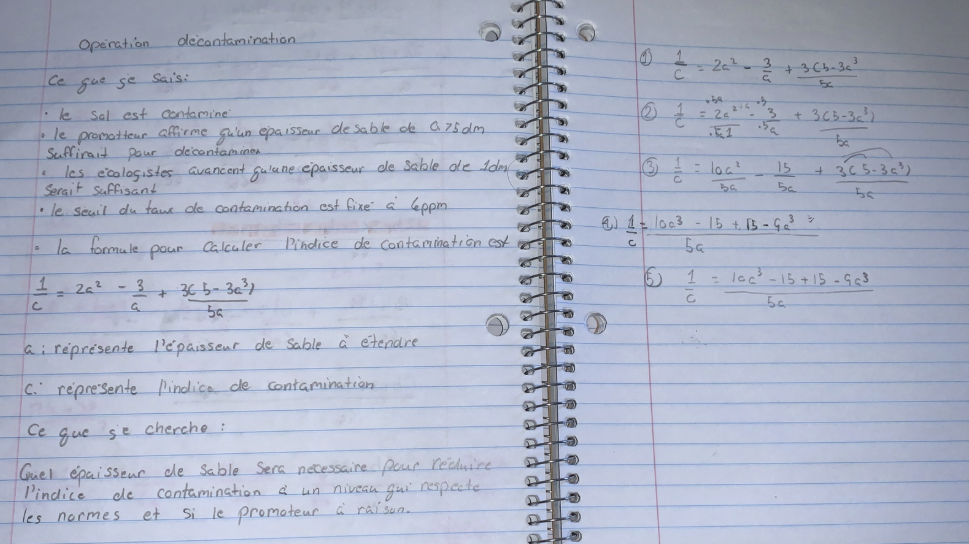 Opération décontamination
Ce que je sais:
• le sol est contaminé
• le promotteur affirme qu'un épaisseur de sable de 0.75dm
suffirait pour décontaminer
• les écologistes avancent qu'une épaisseur de sable de 1dm
serait suffisant
• le seuil du taux de contamination est fixé à 6ppm
• la formule pour calculer l'indice de contamination est
1/c = 2a² - 3/a + 3(5-3a³)/5a
a: représente l'épaisseur de sable à étendre
c: représente l'indice de contamination
Ce que je cherche:
Quel épaisseur de sable sera nécessaire pour réduire
l'indice de contamination à un niveau qui respecte
les normes et si le promoteur à raison.
1) 1/c = 2a² - 3/a + 3(5-3a³)/5a
2) 1/c = 2a² - 3 + 3(5-3a³)
3) 1/c = 10a²/5a - 15/5a + 3(5-3a³)/5a
4) 1/c = 10a³ - 15 + 15 - 9a³/5a
5) 1/c = 10a³ - 15 + 15 - 9a³/5a